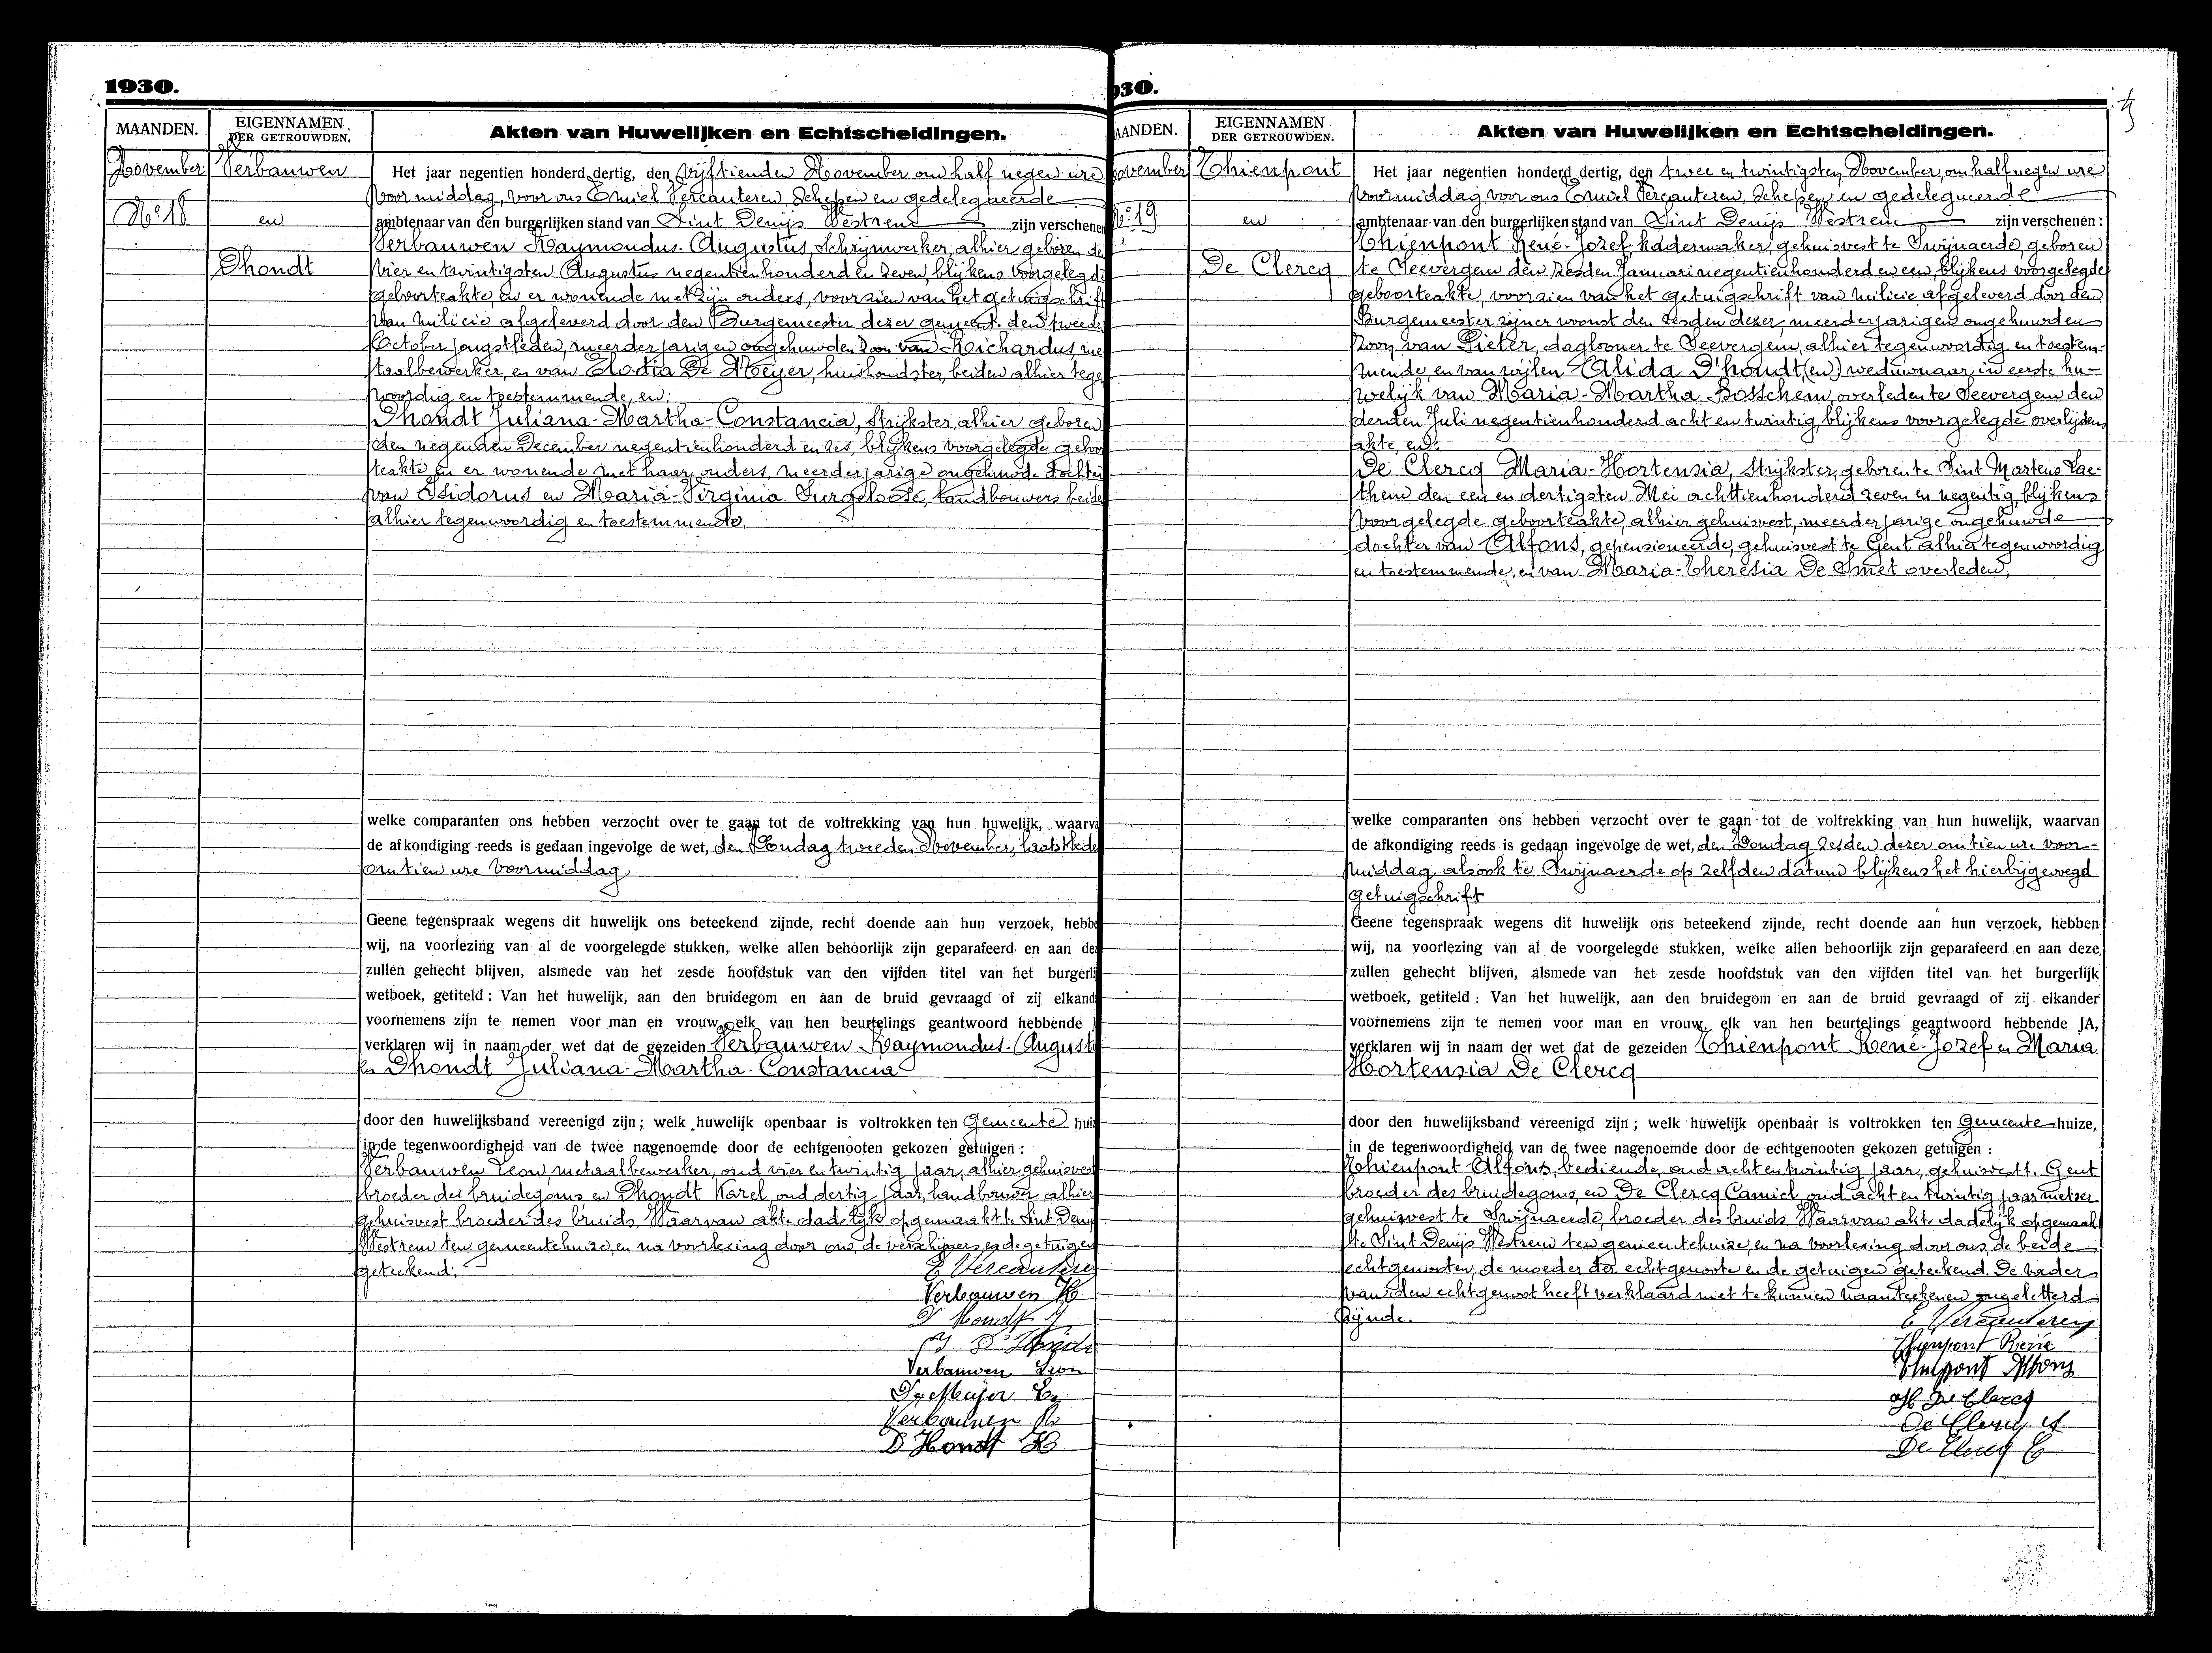 1930.
MAANDEN.
EIGENNAMEN
DER GETROUWDEN.
Akten van Huwelijken en Echtscheidingen.
November
No. 18
Verbauwen
en
Dhondt
Het jaar negentien honderd dertig, den vijftienden November om half negen ure
voormiddag, voor ons Emiel Vercauteren, Schepen en gedelegueerde
ambtenaar van den burgerlijken stand van Sint Denijs Westrem zijn verschenen
Verbauwen Raymondus-Augustus, Schrijnwerker, alhier geboren de
vier en twintigsten Augustus negentienhonderd en zeven, blijkens voorgelegde
geboorteakte, en er wonende met zijn ouders, voorzien van het getuigschrift
van milicie afgeleverd door den Burgemeester dezer gemeente den tweede
October jongstleden, meerderjarigen ongehuwden zoon van Reichardus, me
taalbewerker, en van Elodia De Meyer, huishoudster, beiden alhier tege
woordig en toestemmende, en:
Dhondt Juliana-Martha-Constancia, Strijkster, alhier geboren
den negenden December negentienhonderd en zes, blijkens voorgelegde geboor
teakte en er wonende met haar ouders, meerderjarige ongehuwde dochter
van Isidorus en Maria-Virginia Surgeloose, landbouwers beide
alhier tegenwoordig en toestemmende.
welke comparanten ons hebben verzocht over te gaan tot de voltrekking van hun huwelijk, waarva
de afkondiging reeds is gedaan ingevolge de wet, den Zondag tweeden November, laatstlede
om tien ure voormiddag
Geene tegenspraak wegens dit huwelijk ons beteekend zijnde, recht doende aan hun verzoek, hebbe
wij, na voorlezing van al de voorgelegde stukken, welke allen behoorlijk zijn geparafeerd en aan de
zullen gehecht blijven, alsmede van het zesde hoofdstuk van den vijfden titel van het burgerli
wetboek, getiteld : Van het huwelijk, aan den bruidegom en aan de bruid gevraagd of zij elkand
voornemens zijn te nemen voor man en vrouw, elk van hen beurtelings geantwoord hebbende J
verklaren wij in naam der wet dat de gezeiden Verbauwen Raymondus-August
en Dhondt Juliana-Martha-Constancia
door den huwelijksband vereenigd zijn ; welk huwelijk openbaar is voltrokken ten Gemeente hui
in de tegenwoordigheid van de twee nagenoemde door de echtgenooten gekozen getuigen :
Verbauwen Leon, metaalbewerker, oud vier en twintig jaar, alhier gehuisves
broeder des bruidegoms en Dhondt Karel, oud dertig jaar, landbouwer alhier
gehuisvest broeder des bruids. Waarvan akte dadelijk opgemaakt te Sint Denij
Westrem ten gemeentehuize, en na voorlezing door ons, de verschijners en de getuigen
geteekend.
E Vercauteren
Verbauwen R
D'Hondt J
Verbauwen Leon
De Meijer E
Verbauwen R
D Hondt K
930.
AANDEN.
EIGENNAMEN
DER GETROUWDEN.
Akten van Huwelijken en Echtscheidingen.
ovember
No. 19
Thienpont
en
De Clercq
Het jaar negentien honderd dertig, den twee en twintigsten November, om half negen ure
voormiddag voor ons Emiel Vercauteren, Schepen en gedelegueerde
ambtenaar van den burgerlijken stand van Sint Denijs Westrem zijn verschenen :
Thienpont René-Jozef kadermaker, gehuisvest te Swijnaerde, geboren
te Seevergem den zesden Januari negentienhonderd en een, blijkens voorgelegde
geboorteakte, voorzien van het getuigschrift van milicie afgeleverd door den
Burgemeester zijner woonst den zesden dezer, meerderjarigen ongehuwden
zoon van Pieter, daglooner te Seevergem, alhier tegenwoordig en toestem-
mende, en van wijlen Alida D'hondt (en) weduwnaar in eerste hu-
welijk van Maria-Martha Bosschem, overleden te Seevergem den
derden Juli negentienhonderd acht en twintig, blijkens voorgelegde overlijdens
akte, en:
De Clercq Maria-Hortensia, Strijkster, geboren te Sint Martens Lae-
them den een en dertigsten Mei achttienhonderd zeven en negentig, blijkens
voorgelegde geboorteakte, alhier gehuisvest, meerderjarige ongehuwde
dochter van Alfons, gepensioneerde, gehuisvest te Gent alhier tegenwoordig
en toestemmende, en van Maria-Theresia De Smet overleden,
welke comparanten ons hebben verzocht over te gaan tot de voltrekking van hun huwelijk, waarvan
de afkondiging reeds is gedaan ingevolge de wet, den Zondag zesden dezer om tien ure voor-
middag alsook te Swijnaerde op zelfden datum blijkens het hierbijgevoegd
getuigschrift
Geene tegenspraak wegens dit huwelijk ons beteekend zijnde, recht doende aan hun verzoek, hebben
wij, na voorlezing van al de voorgelegde stukken, welke allen behoorlijk zijn geparafeerd en aan deze
zullen gehecht blijven, alsmede van het zesde hoofdstuk van den vijfden titel van het burgerlijk
wetboek, getiteld : Van het huwelijk, aan den bruidegom en aan de bruid gevraagd of zij elkander
voornemens zijn te nemen voor man en vrouw, elk van hen beurtelings geantwoord hebbende JA,
verklaren wij in naam der wet dat de gezeiden Thienpont René-Jozef en Maria
Hortensia De Clercq
door den huwelijksband vereenigd zijn ; welk huwelijk openbaar is voltrokken ten Gemeente huize,
in de tegenwoordigheid van de twee nagenoemde door de echtgenooten gekozen getuigen :
Thienpont Alfons, bediende, oud acht en twintig jaar, gehuisvest te Gent
broeder des bruidegoms, en De Clercq Camiel, oud acht en twintig jaar metser
gehuisvest te Swijnaerde, broeder des bruids. Waarvan akte dadelijk opgemaakt
te Sint Denijs Westrem ten gemeentehuize, en na voorlezing door ons, de beide
echtgenooten, de moeder der echtgenoote en de getuigen geteekend. De vader
van den echtgenoot heeft verklaard niet te kunnen naamteekenen ongeletterd
zijnde.
E Vercauteren
Thienpont René
Thienpont Alfons
H De Clercq
De Clercq A
De Clercq C